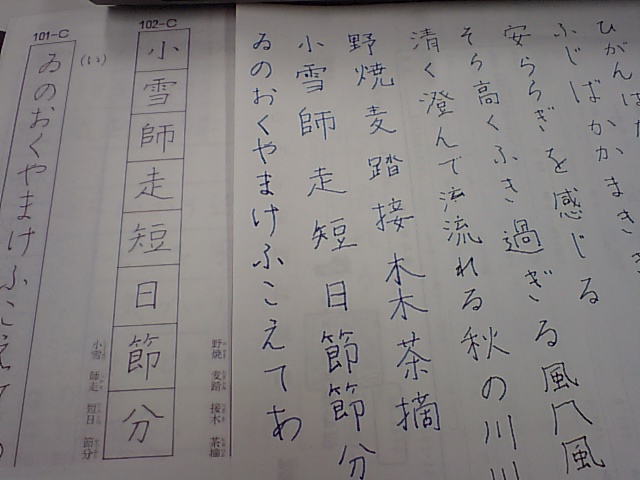 ひがんば
ふじばかかまき
安ららぎを感じる
そら高くふき過ぎる風几風
清く澄んで流れる秋の川川
野焼麦踏接木木茶摘
小雪師走短日節節分
ゐのおくやまけふこえてあ
野焼 麦踏 接木 茶摘
102-C
小雪師走短日節分
小雪 師走 短日 節分
(い)
101-C
ゐのおくやまけふこえ